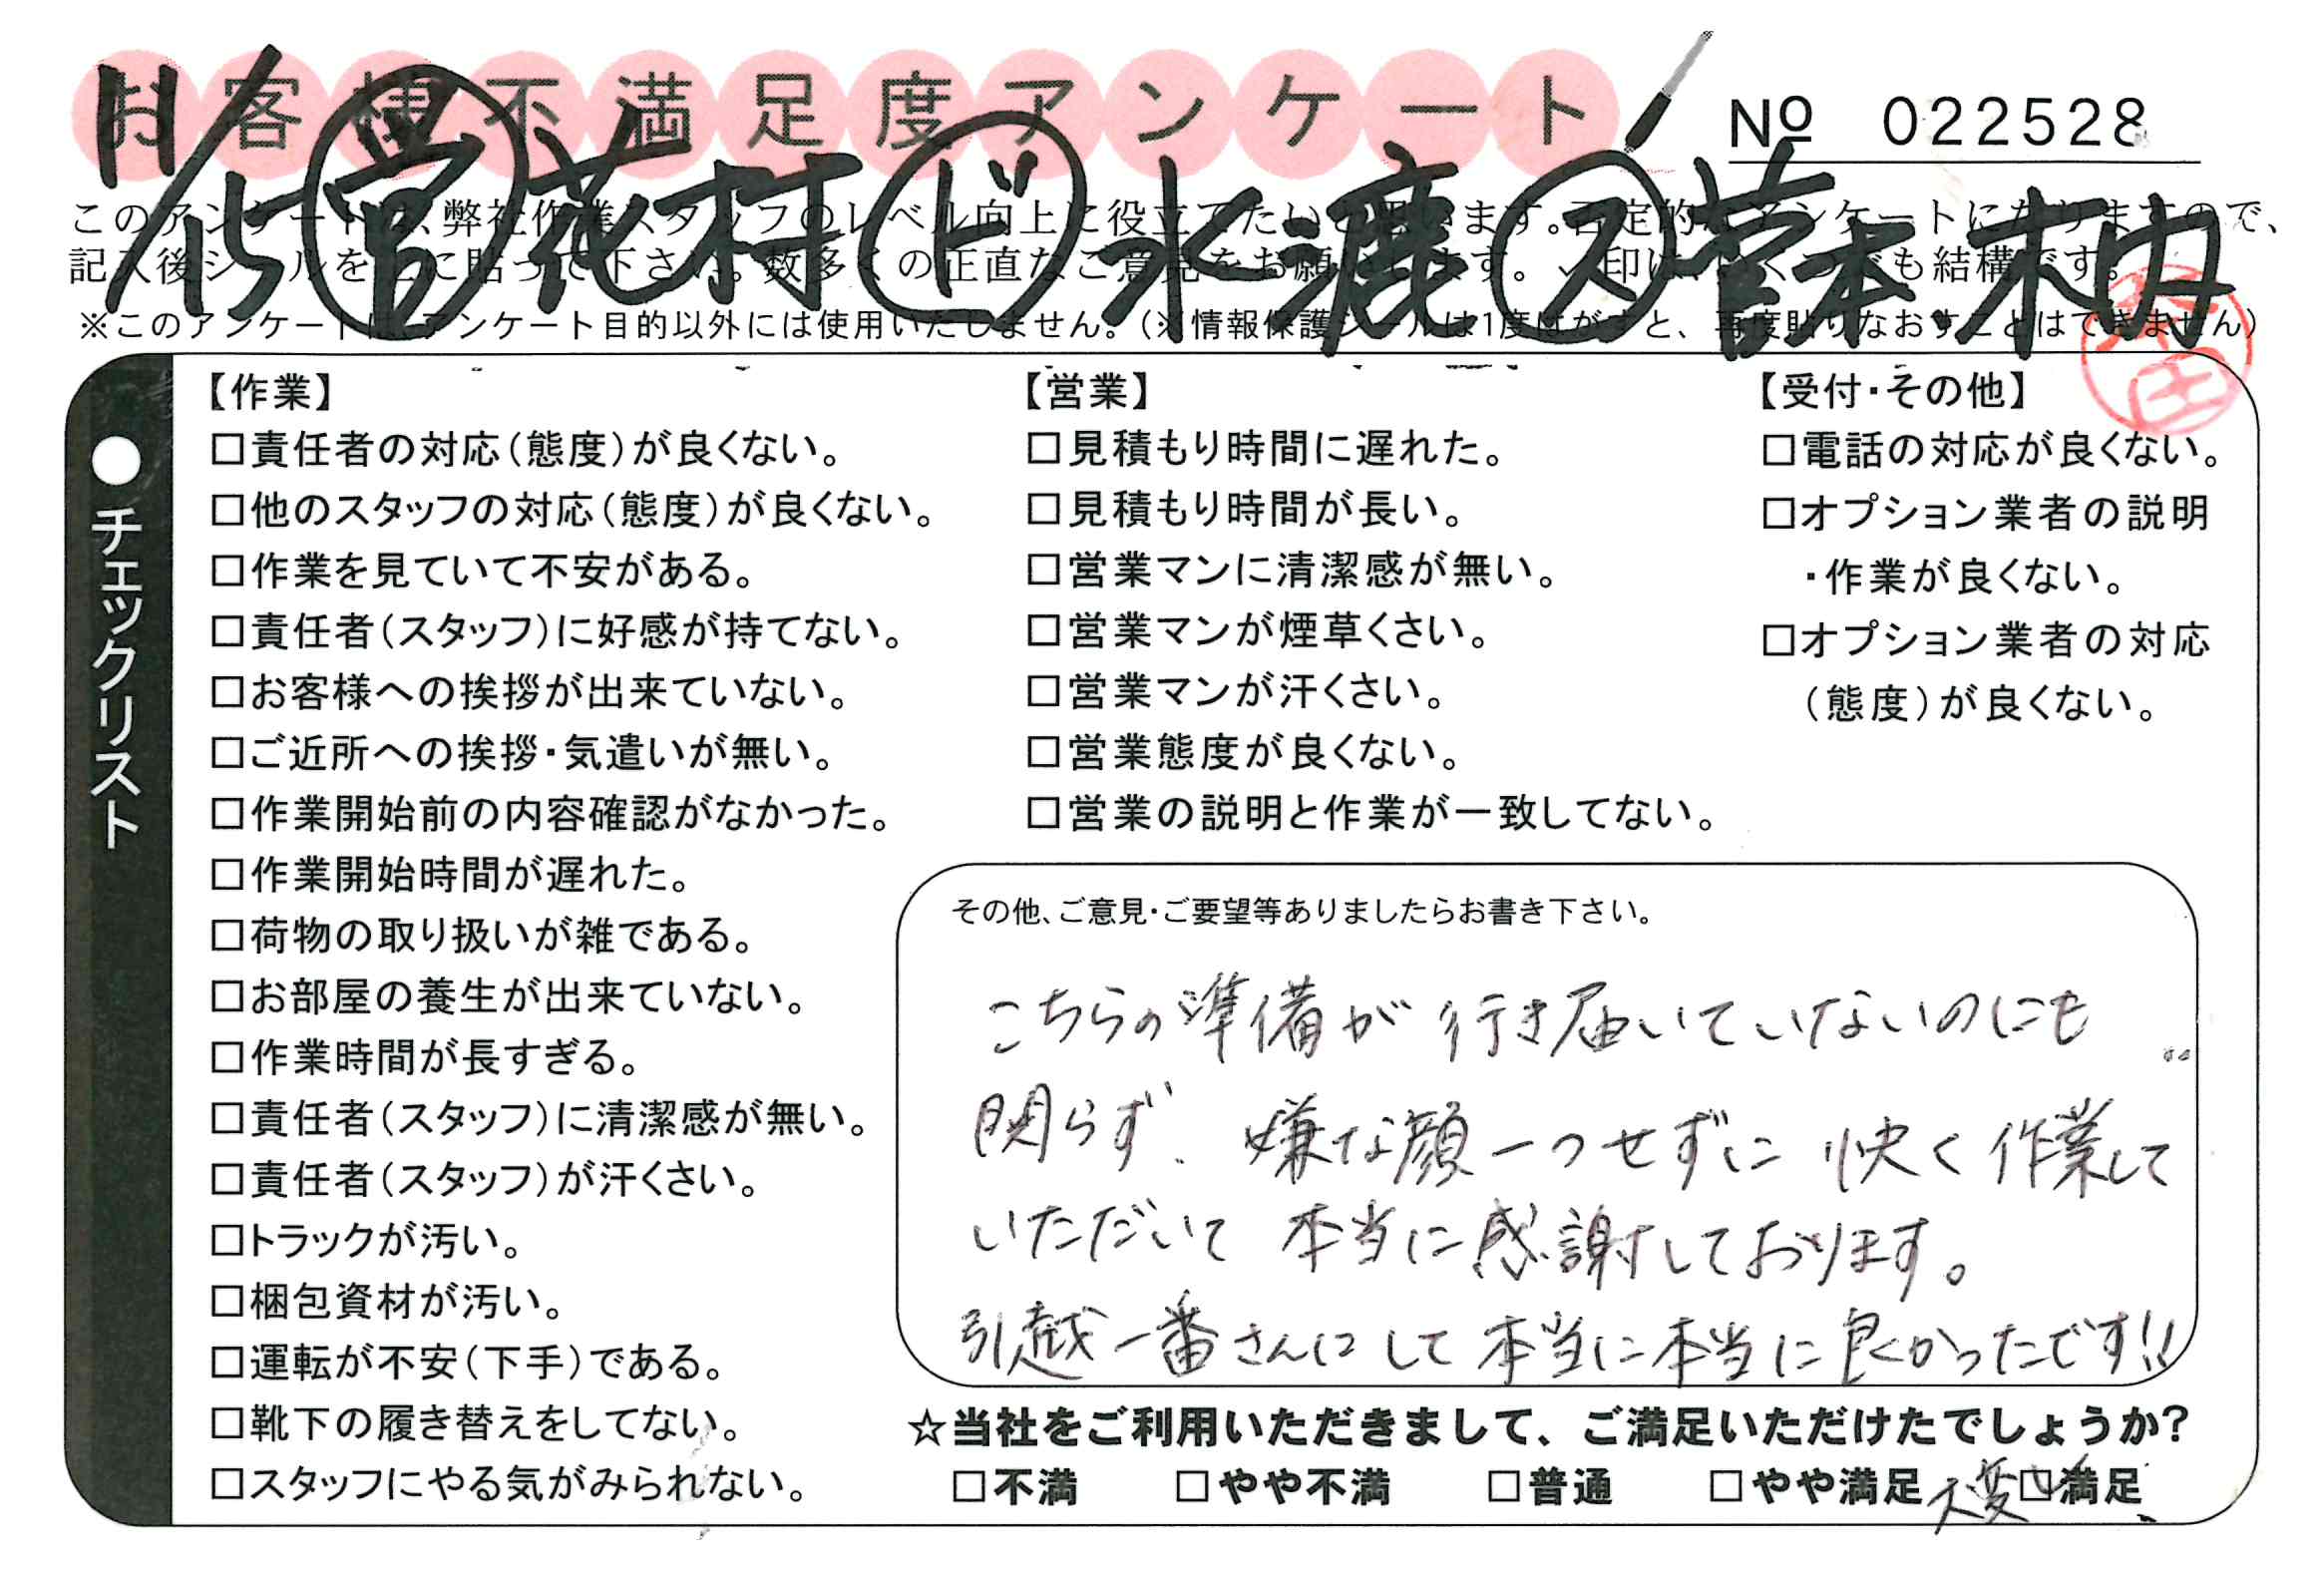 お客様不満足度アンケート
№ 022528
11/15 花村 ビ 水漉 ス 菅本
このアンケートは、弊社作業スタッフのレベル向上に役立てたいと思います。否定的なアンケートになりますので、
記入後シールを上に貼って下さい。数多くの正直なご意見をお願いします。✓印は、いくつでも結構です。
※このアンケートは、アンケート目的以外には使用いたしません。(※情報保護シールは1度はがすと、再度貼りなおすことはできません)
●チェックリスト
【作業】
□責任者の対応(態度)が良くない。
□他のスタッフの対応(態度)が良くない。
□作業を見ていて不安がある。
□責任者(スタッフ)に好感が持てない。
□お客様への挨拶が出来ていない。
□ご近所への挨拶・気遣いが無い。
□作業開始前の内容確認がなかった。
□作業開始時間が遅れた。
□荷物の取り扱いが雑である。
□お部屋の養生が出来ていない。
□作業時間が長すぎる。
□責任者(スタッフ)に清潔感が無い。
□責任者(スタッフ)が汗くさい。
□トラックが汚い。
□梱包資材が汚い。
□運転が不安(下手)である。
□靴下の履き替えをしてない。
□スタッフにやる気がみられない。
【営業】
□見積もり時間に遅れた。
□見積もり時間が長い。
□営業マンに清潔感が無い。
□営業マンが煙草くさい。
□営業マンが汗くさい。
□営業態度が良くない。
□営業の説明と作業が一致してない。
【受付・その他】
□電話の対応が良くない。
□オプション業者の説明
・作業が良くない。
□オプション業者の対応
(態度)が良くない。
その他、ご意見・ご要望等ありましたらお書き下さい。
こちらの準備が行き届いていないのにも
関らず、嫌な顔一つせずに快く作業して
いただいて 本当に感謝しております。
引越一番さんにして本当に本当に良かったです!!
☆当社をご利用いただきまして、ご満足いただけたでしょうか?
□不満 □やや不満 □普通 □やや満足 大変 □満足